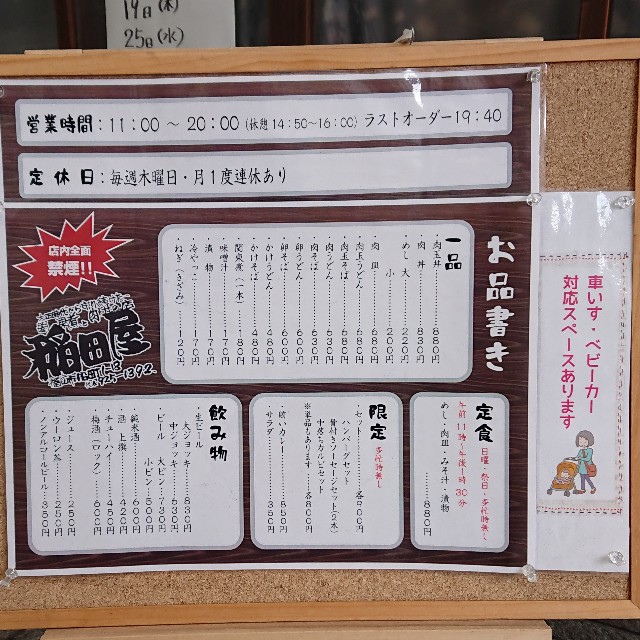 19日(木)
25日(水)
営業時間：11：00 ～ 20：00 (休憩 14：50～16：00) ラストオーダー19：40
定休日：毎週木曜日・月1度連休あり
店内全面
禁煙!!
稲田屋
お品書き
一品
・肉玉丼………880円
・肉丼………830円
・めし 大………220円
小………200円
・肉皿………680円
・肉玉うどん………680円
・肉玉そば………680円
・肉うどん………630円
・肉そば………630円
・卵うどん………530円
・卵そば………530円
・かけうどん………480円
・かけそば………480円
・関東煮(一本)………180円
・味噌汁………170円
・漬物………170円
・冷やっこ………170円
・ねぎ(きざみ)………120円
定食
日曜・祭日・多忙時無し
午前11時～午後1時30分
めし・肉皿・みそ汁・漬物
………880円
限定
多忙時無し
・セット
ハンバーグセット
骨付きソーセージセット(2本)
中落ちカルビセット
※単品もあります
・黒いカレー………850円
・サラダ………350円
飲み物
・生ビール
大ジョッキ………830円
中ジョッキ………630円
・ビール 大ビン………730円
小ビン………500円
・純米酒………600円
・酒 上撰………420円
・チューハイ………450円
・梅酒(ロック)………600円
・ジュース………250円
・ウーロン茶………250円
・ノンアルコールビール………350円
車いす・ベビーカー
対応スペースあります